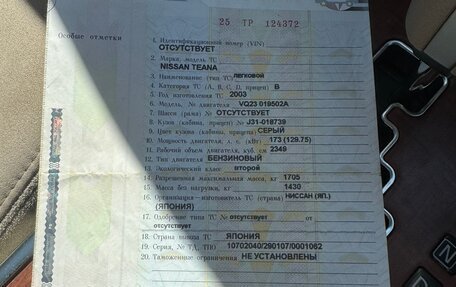 25 ТР 124372
Особые отметки
1. Идентификационный номер (VIN)
ОТСУТСТВУЕТ
2. Марка, модель ТС
NISSAN TEANA
3. Наименование (тип ТС) легковой
4. Категория ТС (А, В, С, D, прицеп) В
5. Год изготовления ТС 2003
6. Модель, № двигателя VQ23 019502A
7. Шасси (рама) № ОТСУТСТВУЕТ
8. Кузов (кабина, прицеп) № J31-018739
9. Цвет кузова (кабины, прицепа) СЕРЫЙ
10. Мощность двигателя, л. с. (кВт) 173 (129.75)
11. Рабочий объем двигателя, куб. см 2349
12. Тип двигателя БЕНЗИНОВЫЙ
13. Экологический класс второй
14. Разрешенная максимальная масса, кг 1705
15. Масса без нагрузки, кг 1430
16. Организация-изготовитель ТС (страна) НИССАН (ЯП.)
(ЯПОНИЯ)
17. Одобрение типа ТС № отсутствует от
отсутствует
18. Страна вывоза ТС ЯПОНИЯ
19. Серия, № ТД, ТПО 10702040/290107/0001062
20. Таможенные ограничения НЕ УСТАНОВЛЕНЫ